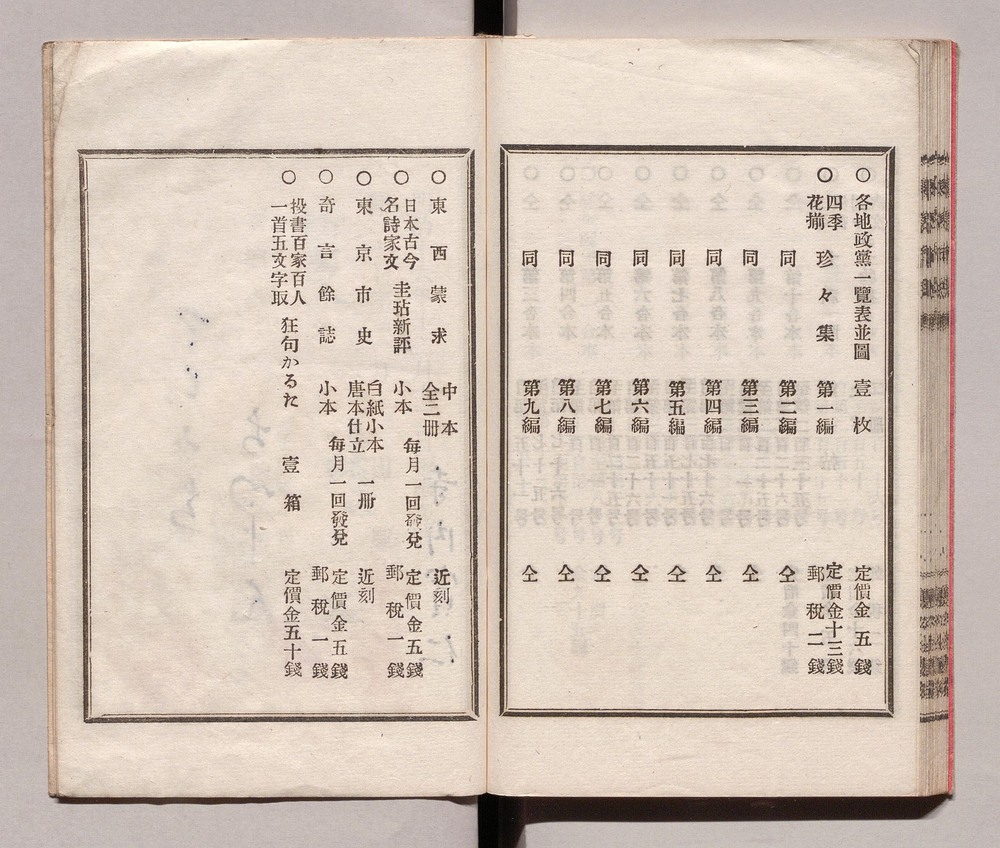 ○各地政黨一覽表並圖 壹枚 定價金五錢
○四季花揃 珍々集 第一編 定價金十三錢 郵稅二錢
○同 第二編 仝
○同 第三編 仝
○同 第四編 仝
○同 第五編 仝
○同 第六編 仝
○同 第七編 仝
○同 第八編 仝
○同 第九編 仝
○東西蒙求 中本全二冊 近刻
○日本古今名詩家文 圭玷新評 小本 每月一回發兌 定價金五錢 郵稅一錢
○東京市史 白紙小本唐本仕立 一册 近刻
○奇言餘誌 小本 每月一回發兌 定價金五錢 郵稅一錢
○投書百家百人一首五文字取 狂句かるた 壹箱 定價金五十錢